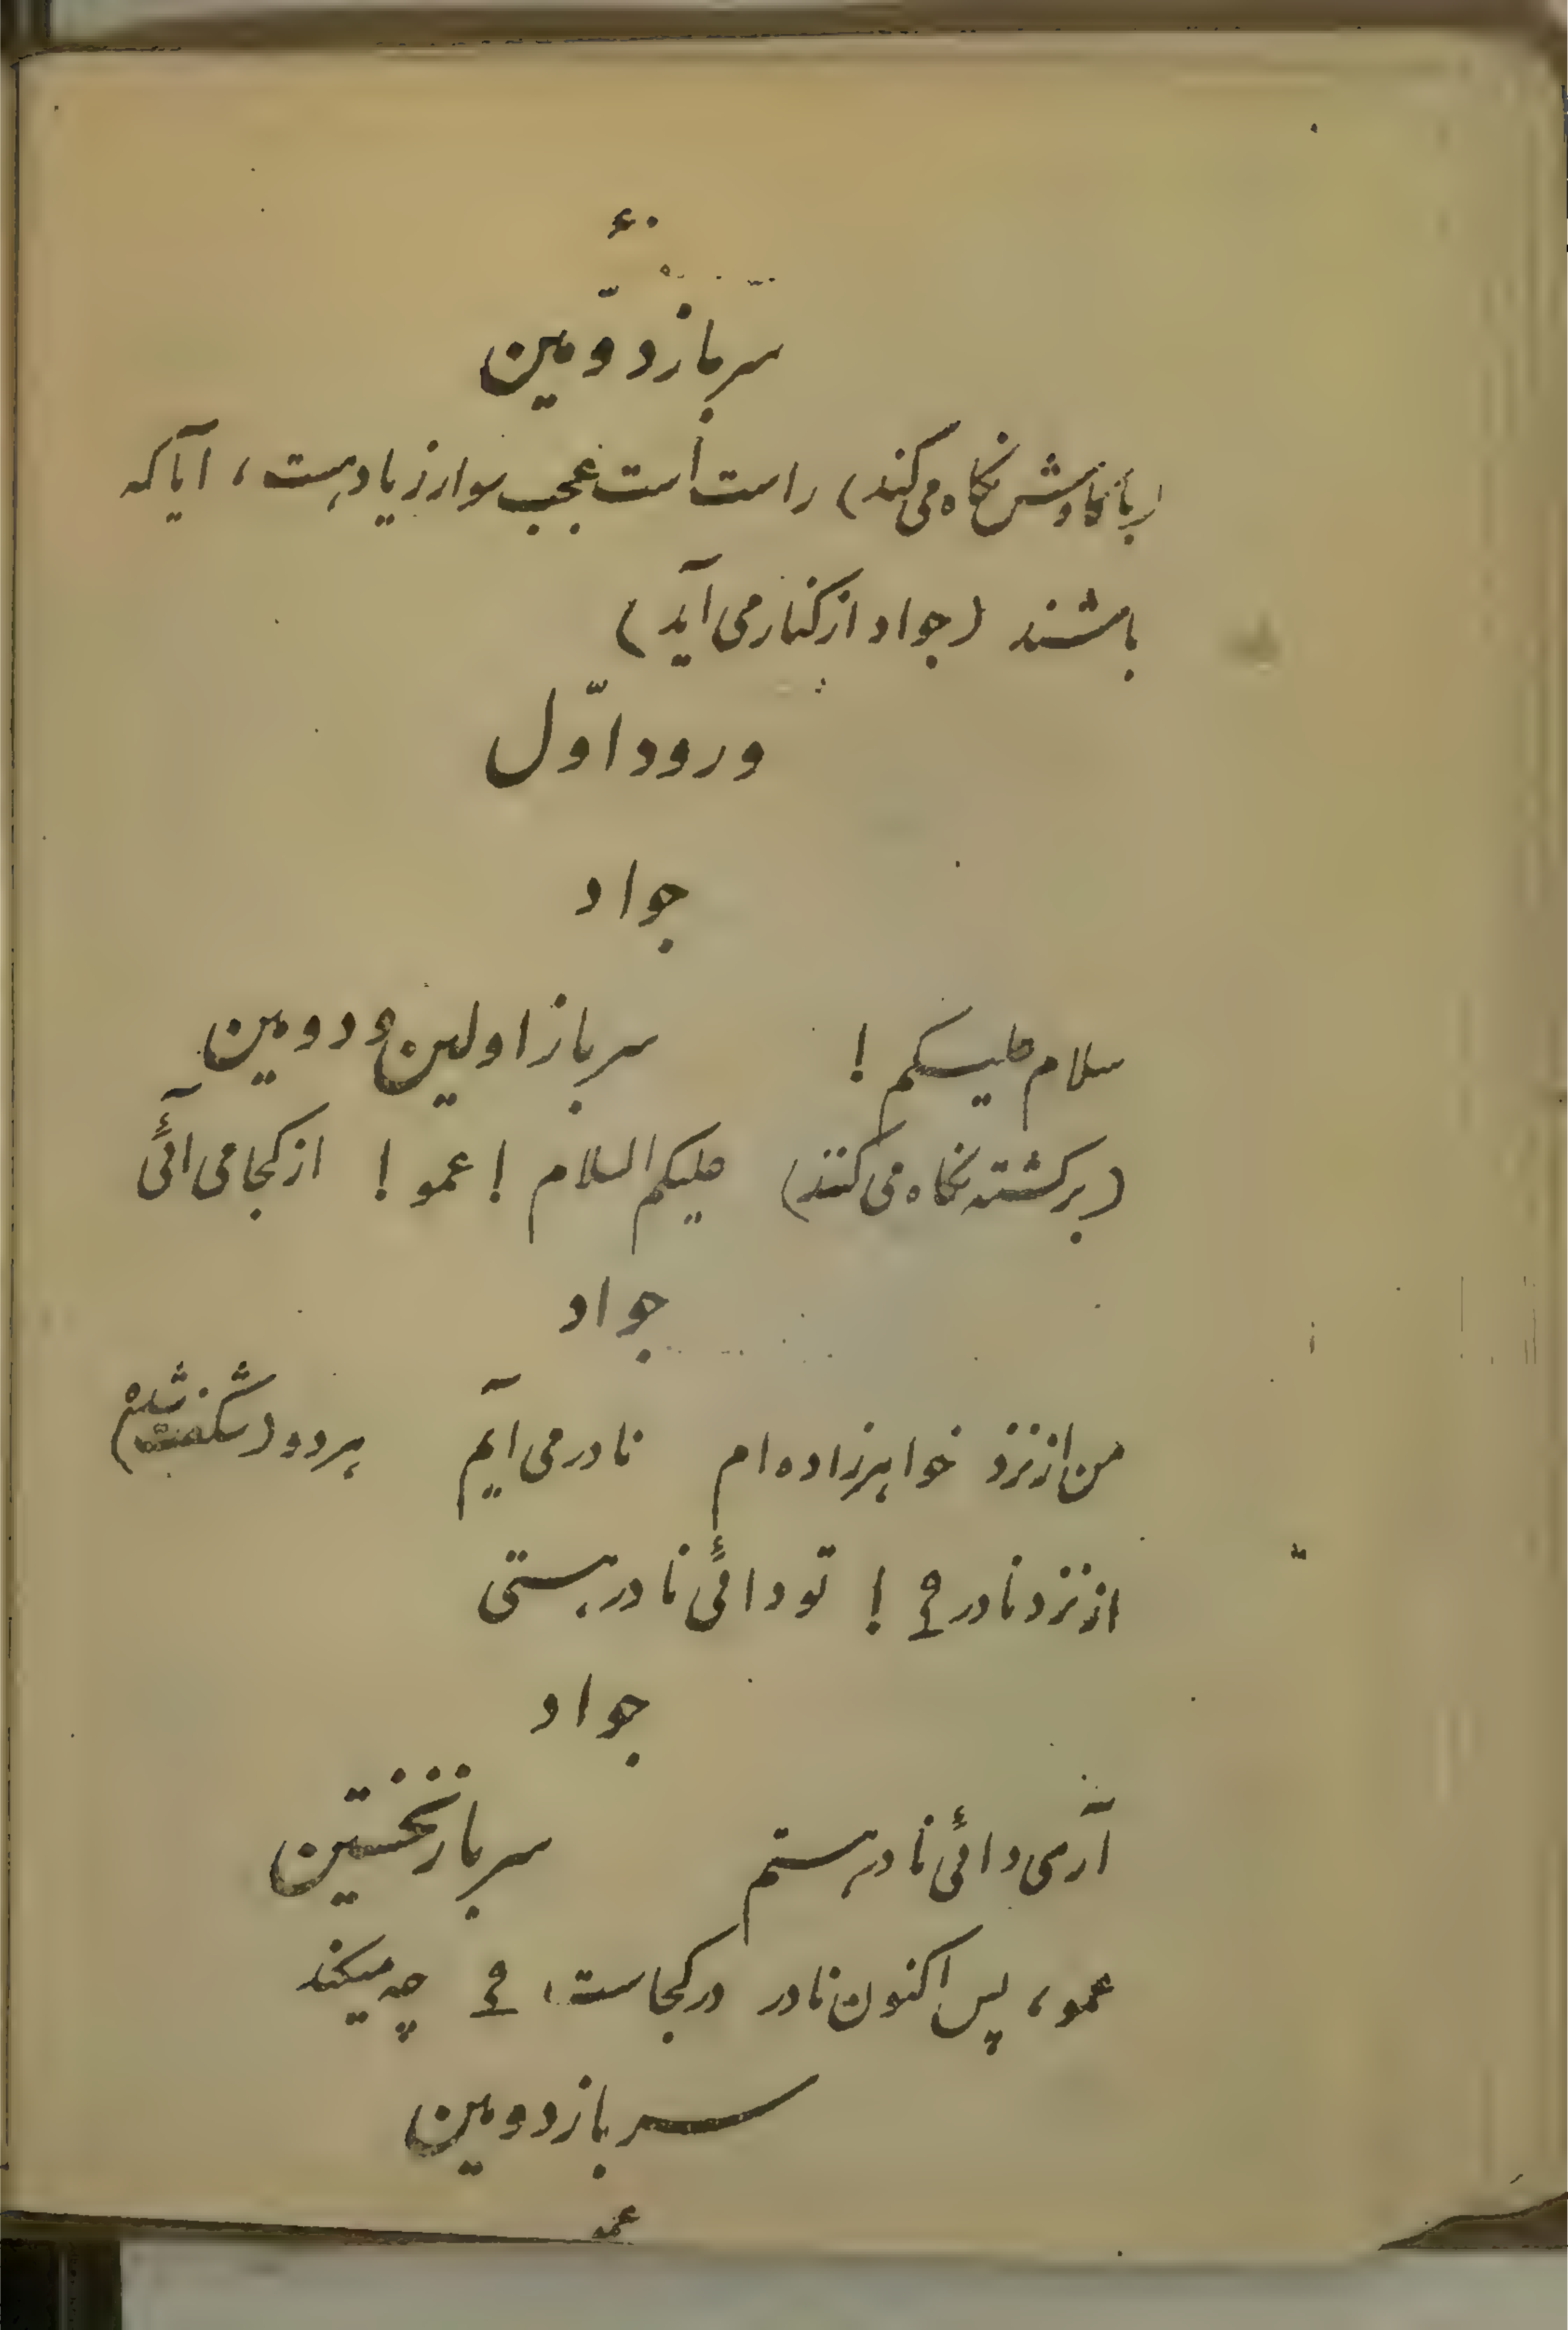 ۴۰
سرباز دوّمین
(با کاوش نگاه می‌کند) راست است عجب سوار زیاد هست، آیا که
باشند (جواد از کنار می‌آید)
ورود اوّل
جواد
سلام علیکم ! سرباز اولین و دومین
(برگشته نگاه می‌کنند) علیکم السلام ! عمو ! از کجا می آئی
جواد
من از نزد خواهرزاده‌ام نادر می‌آیم هر دو (شگفت شده)
از نزد نادر ؟ ! تو دائی نادر هستی
جواد
آری دائی نادر هستم سرباز نخستین
عمو، پس اکنون نادر در کجاست، ؟ چه میکند
سرباز دومین
عمو